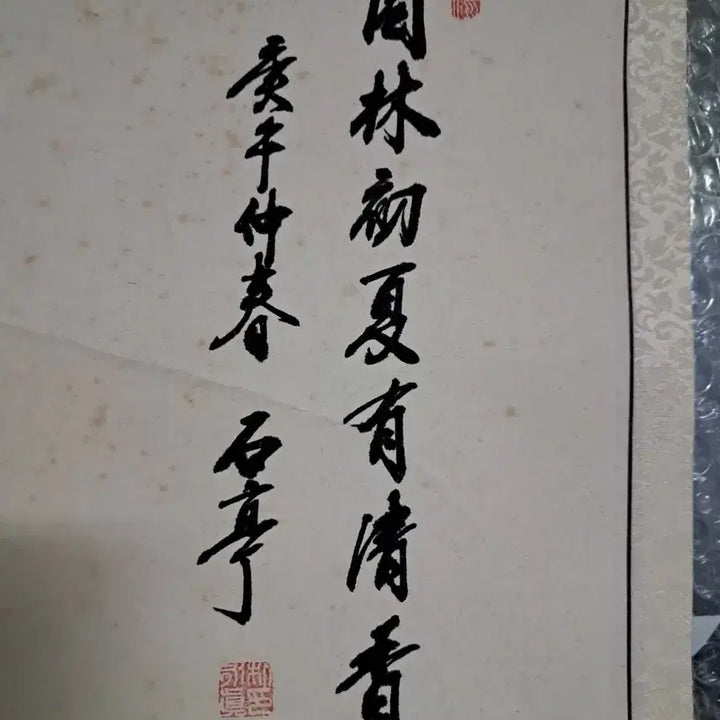 園林初夏有清香
庚午仲春 石亭